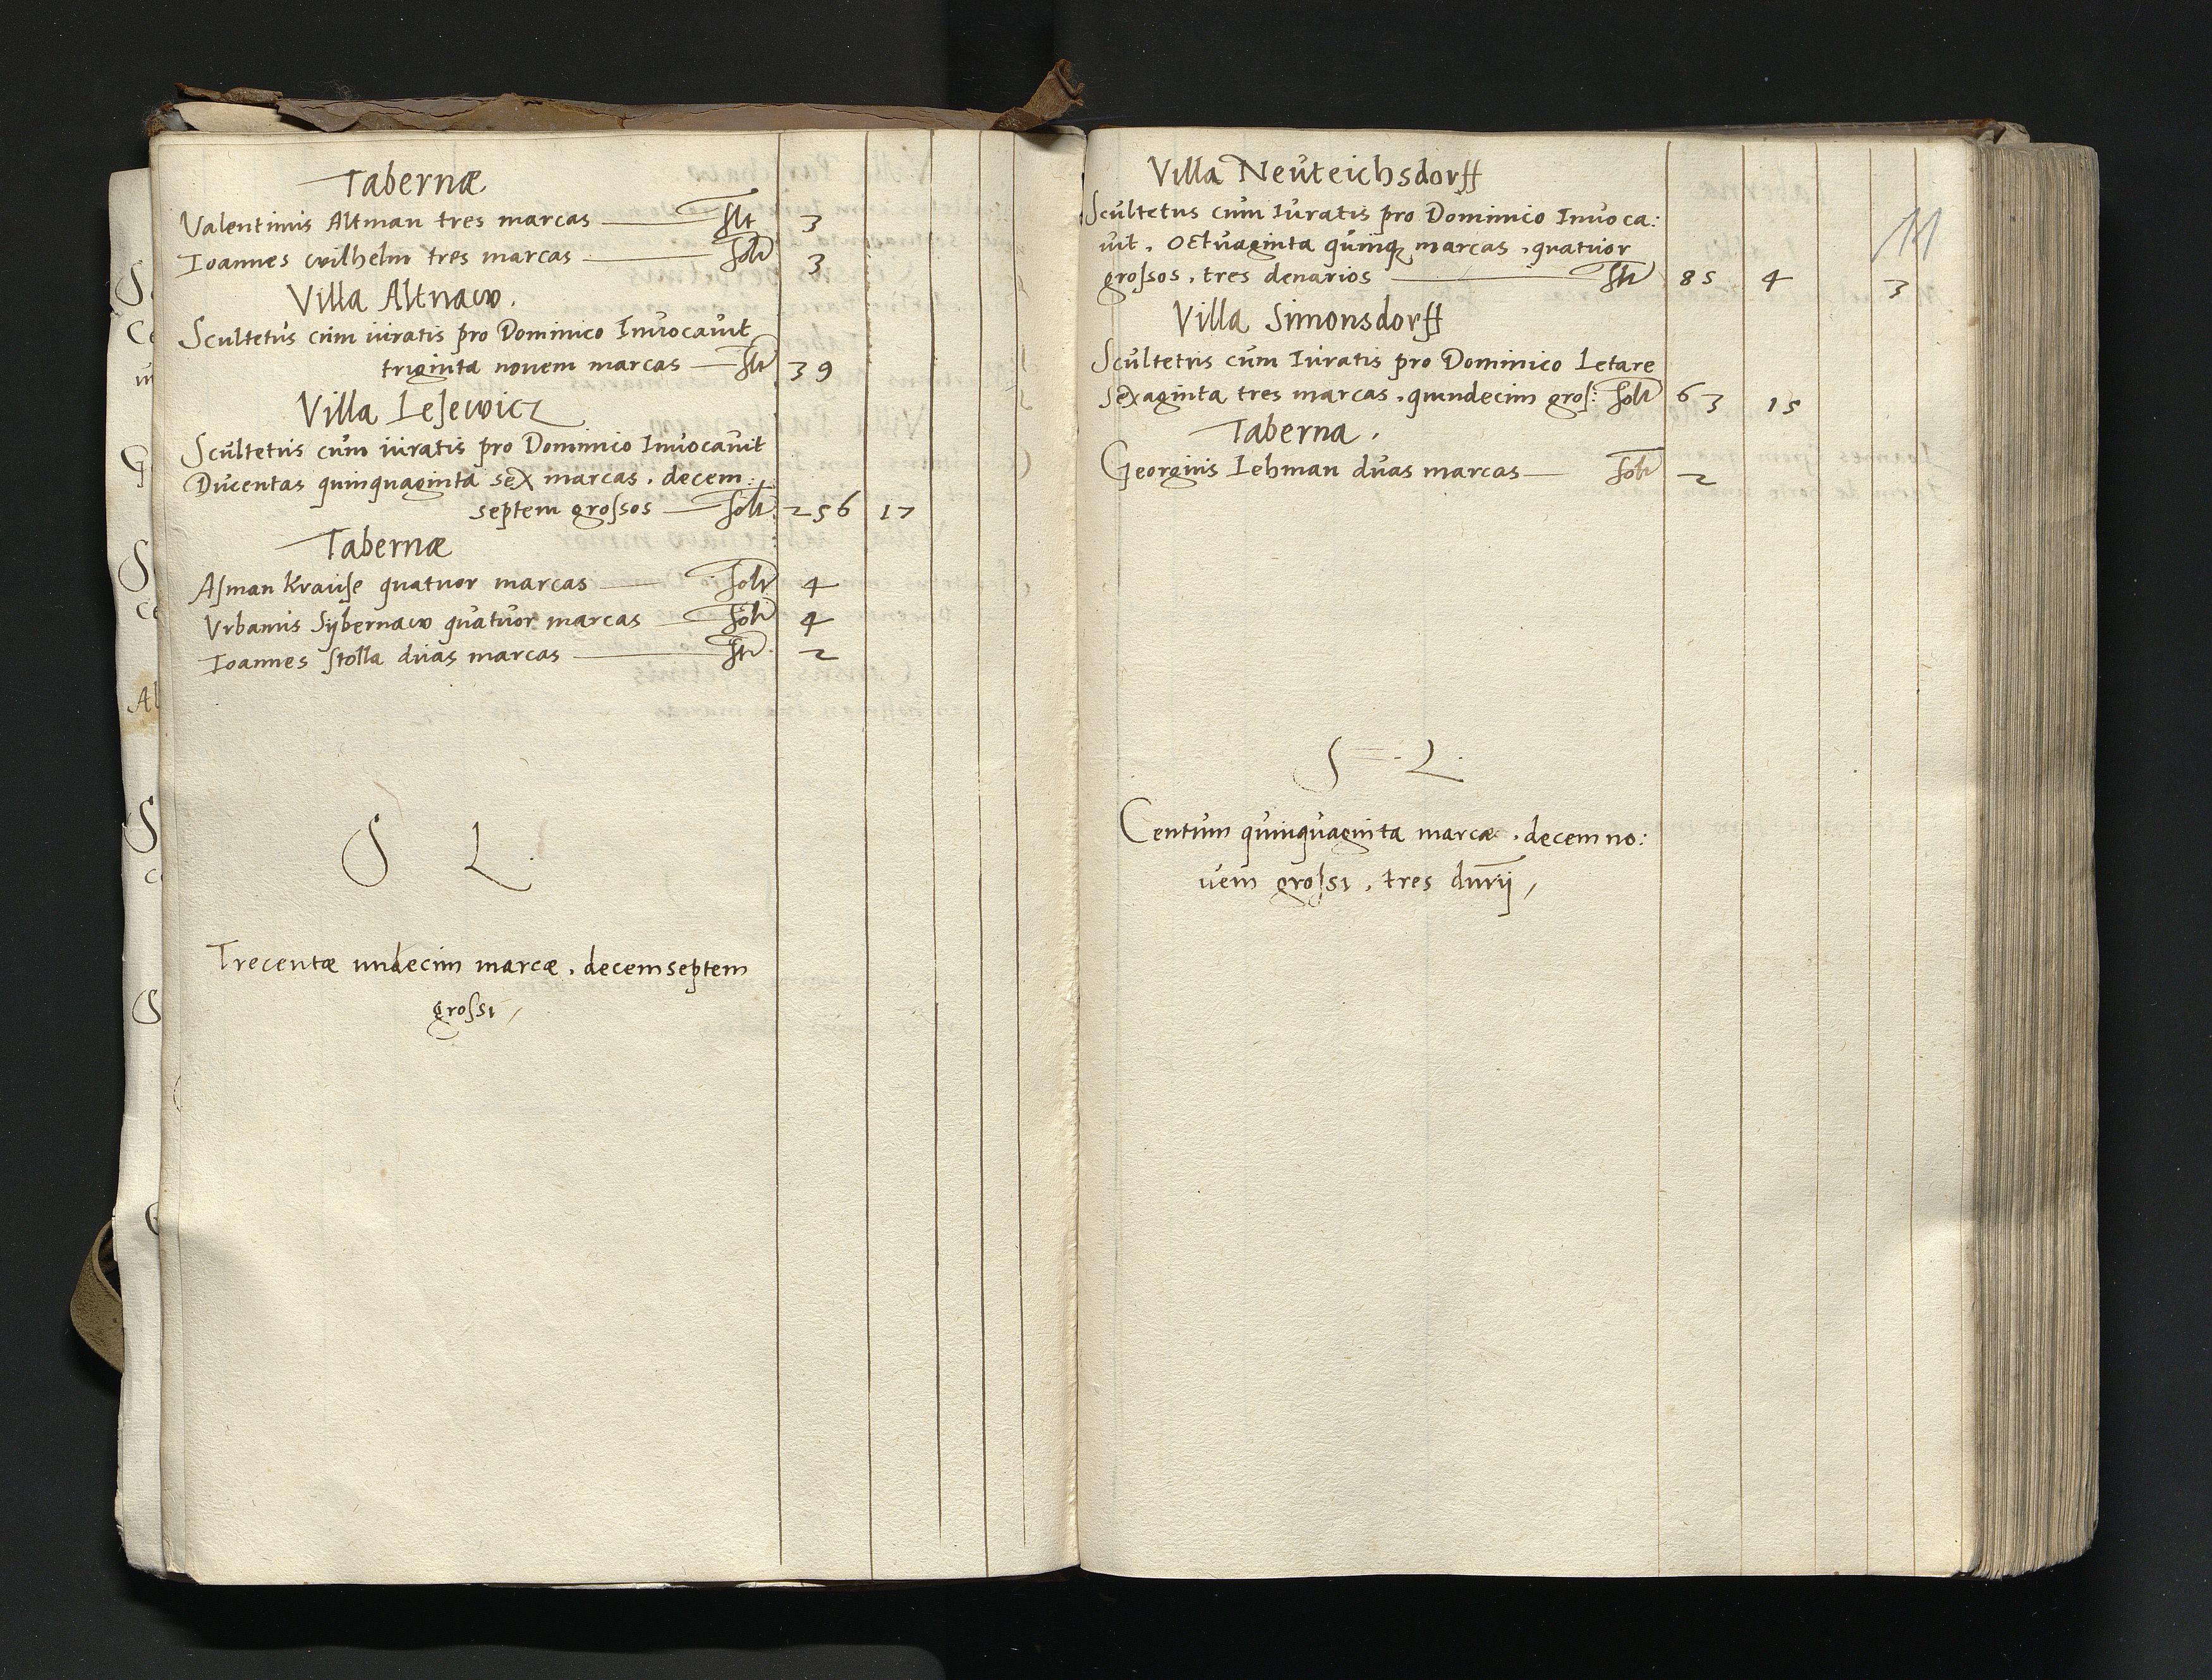 Tabernæ
Valentinus Altman tres marcas — solt 3
Ioannes wilhelm tres marcas — solt 3
Villa Altnaw.
Scultetus cum iuratis pro Dominico Inuocauit
triginta nouem marcas — solt 39
Villa Lesewicz
Scultetus cum iuratis pro Dominico Inuocauit
Ducentas quinquaginta sex marcas, decem:
septem grossos — solt 256 17
Tabernæ
Asman Krause quatuor marcas — solt 4
Vrbanus Sybernaw quatuor marcas — solt 4
Ioannes Stolla duas marcas — solt 2
S L.
Trecentæ undecim marcæ, decemseptem
grossi,
11
Villa Neuteichsdorff
Scultetus cum Iuratis pro Dominico Inuoca:
uit, octuaginta quinq; marcas, quatuor
grossos, tres denarios — solt 85 4 3
Villa Simonsdorff
Scultetus cum Iuratis pro Dominico Letare
sexaginta tres marcas, quindecim gros: solt 63 15
Taberna.
Georgius Lehman duas marcas — solt 2
S L.
Centum quinquaginta marcæ, decem no:
uem grossi, tres dnrij,